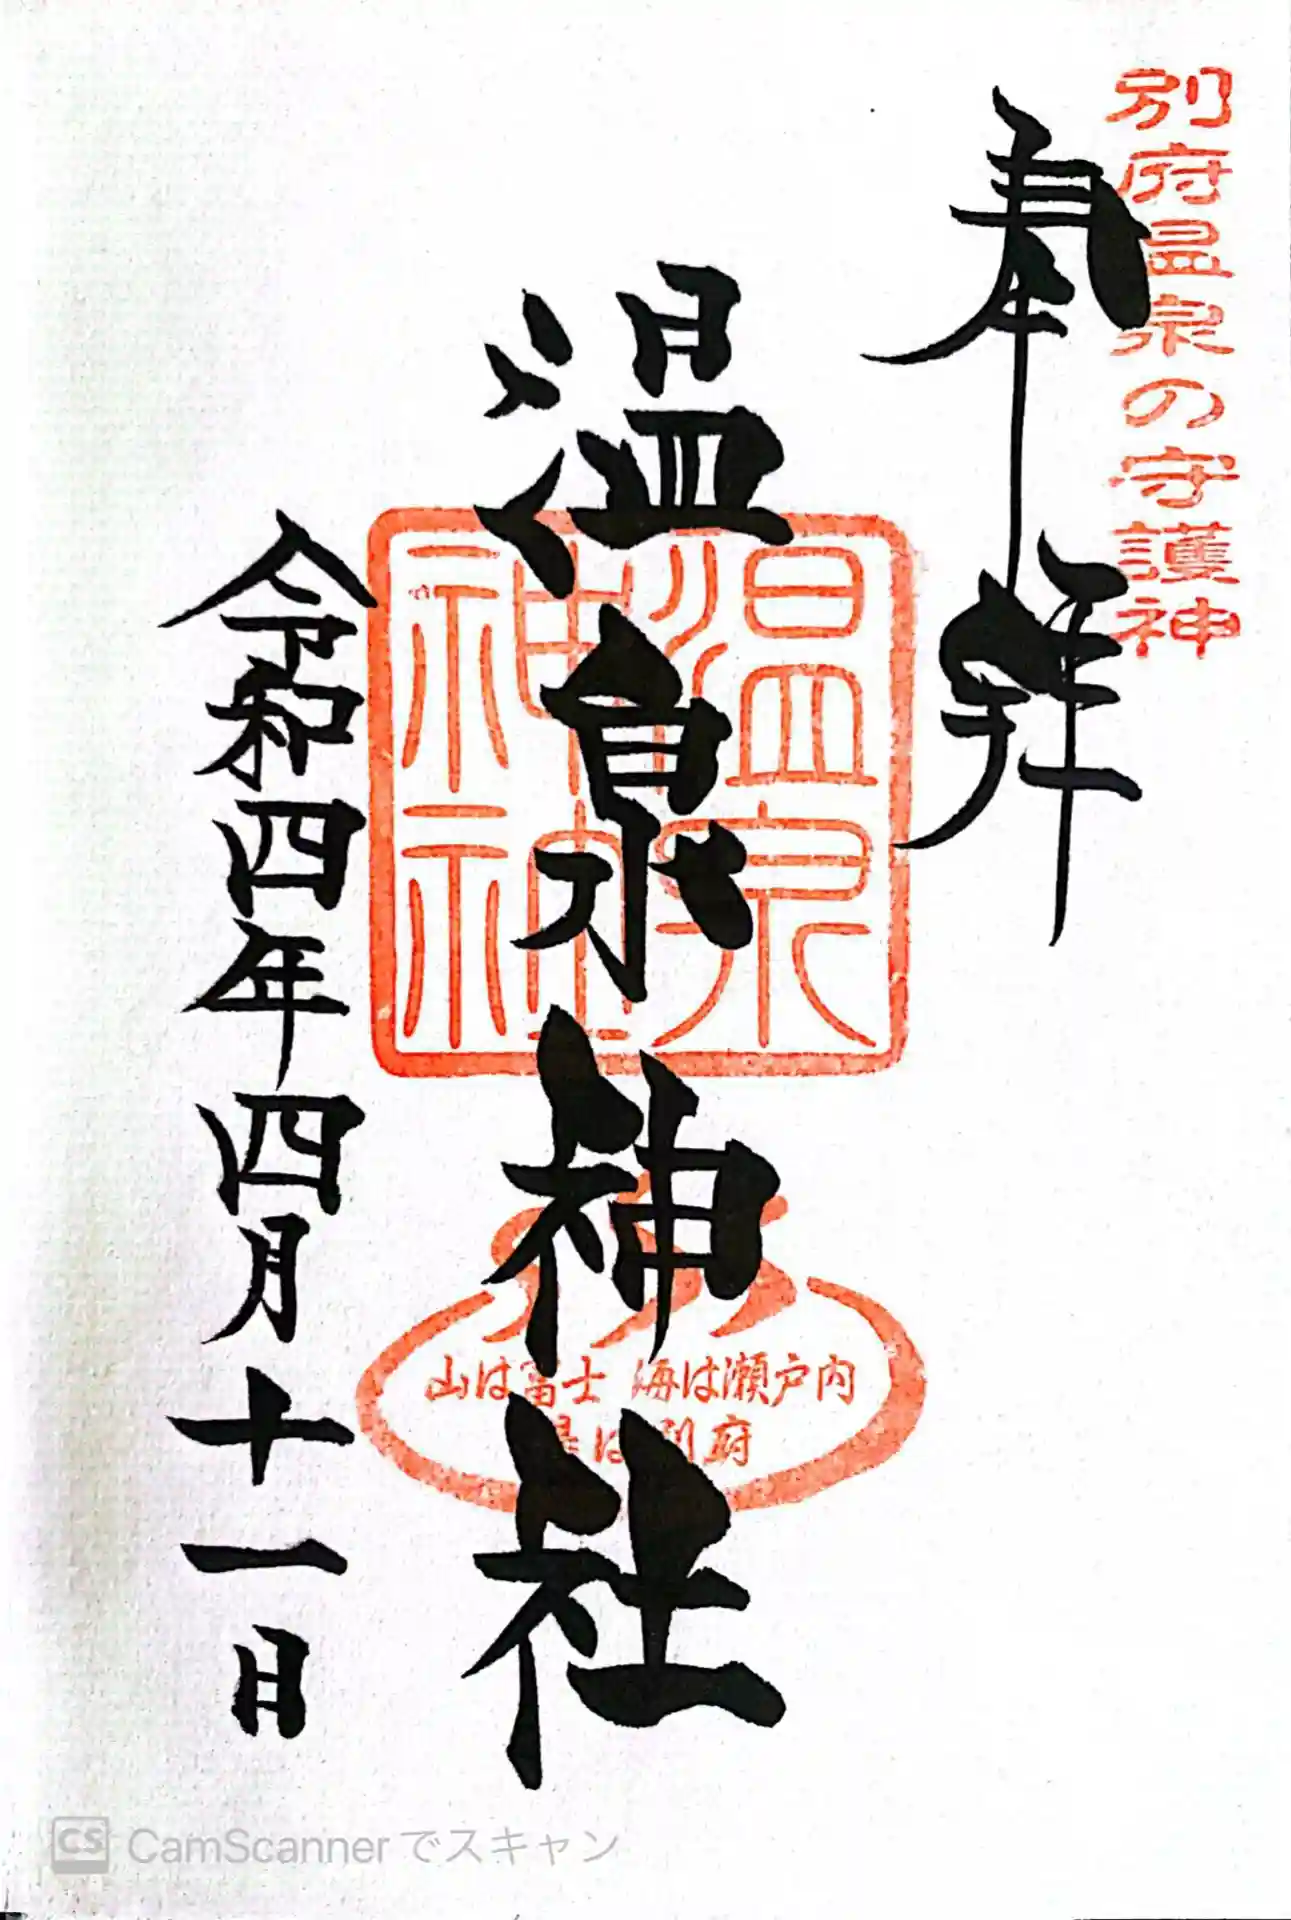 別府温泉の守護神
奉拝
温泉神社
温泉
神社
山は富士 海は瀬戸内
湯は別府
令和四年四月十一日
CS CamScannerでスキャン